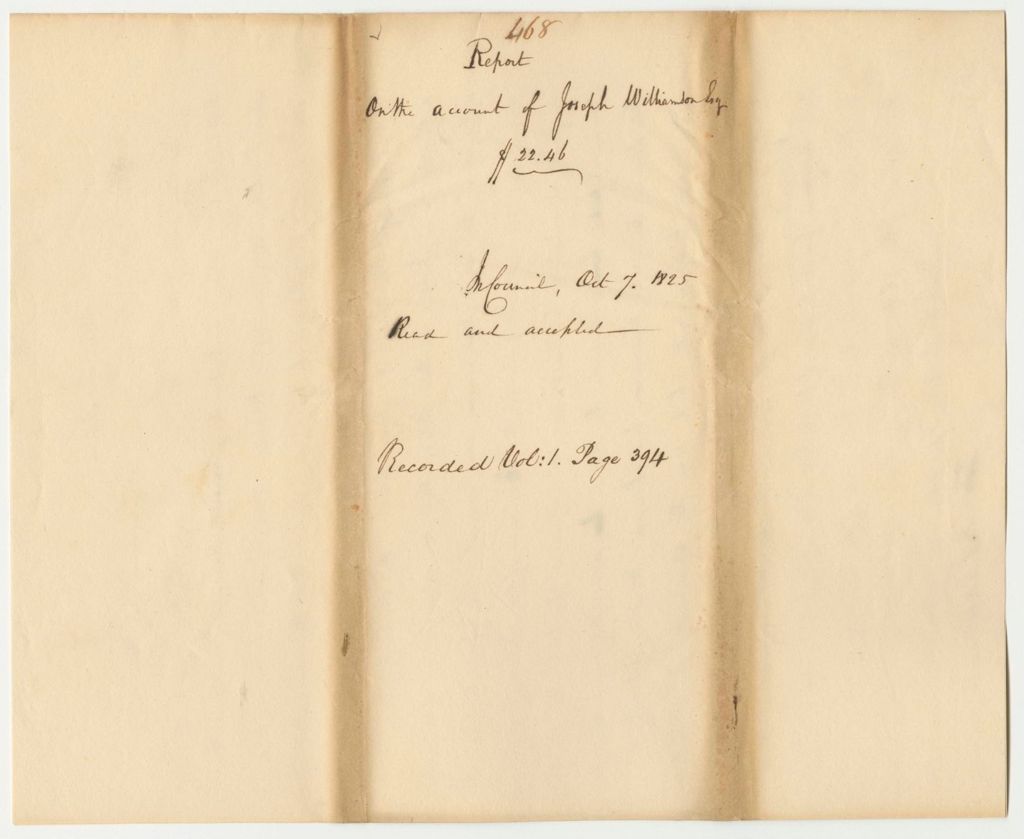 468
Report
On the account of Joseph Williamson Esq.
$ 22.46
In Council, Oct 7. 1825
Read and accepted
Recorded Vol: 1. Page 394